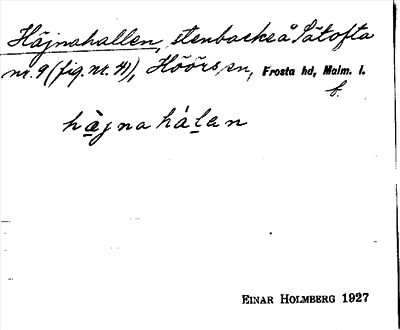 Häjnahallen, stenbacke å Sätofta
nr. 9 (fig. nr. 41), Höörs sn, Frosta hd, Malm. l.
b.
hæ̀jna hálen
EINAR HOLMBERG 1927